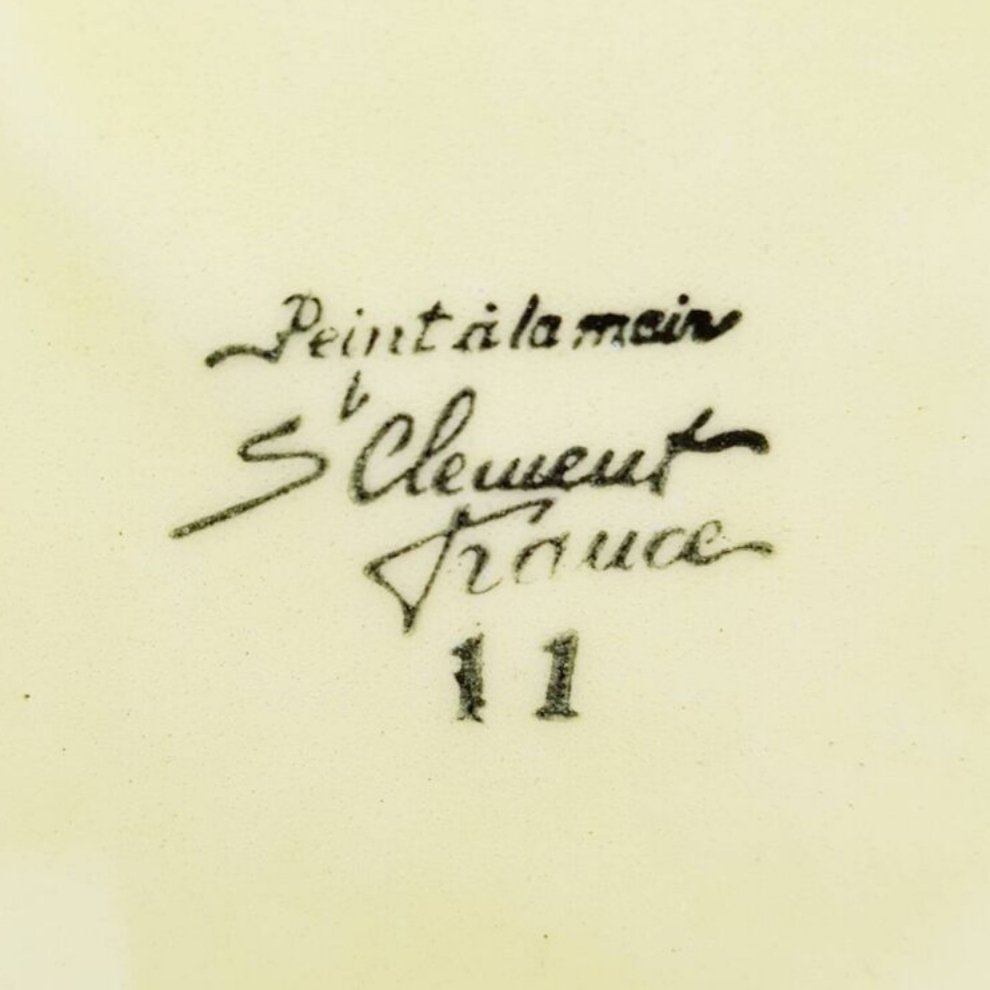 Peint à la main
St Clement
France
11